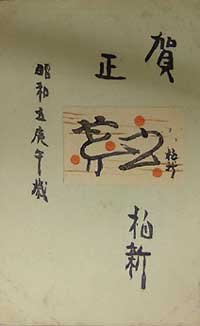 賀
正
柏新
昭和五庚午歳